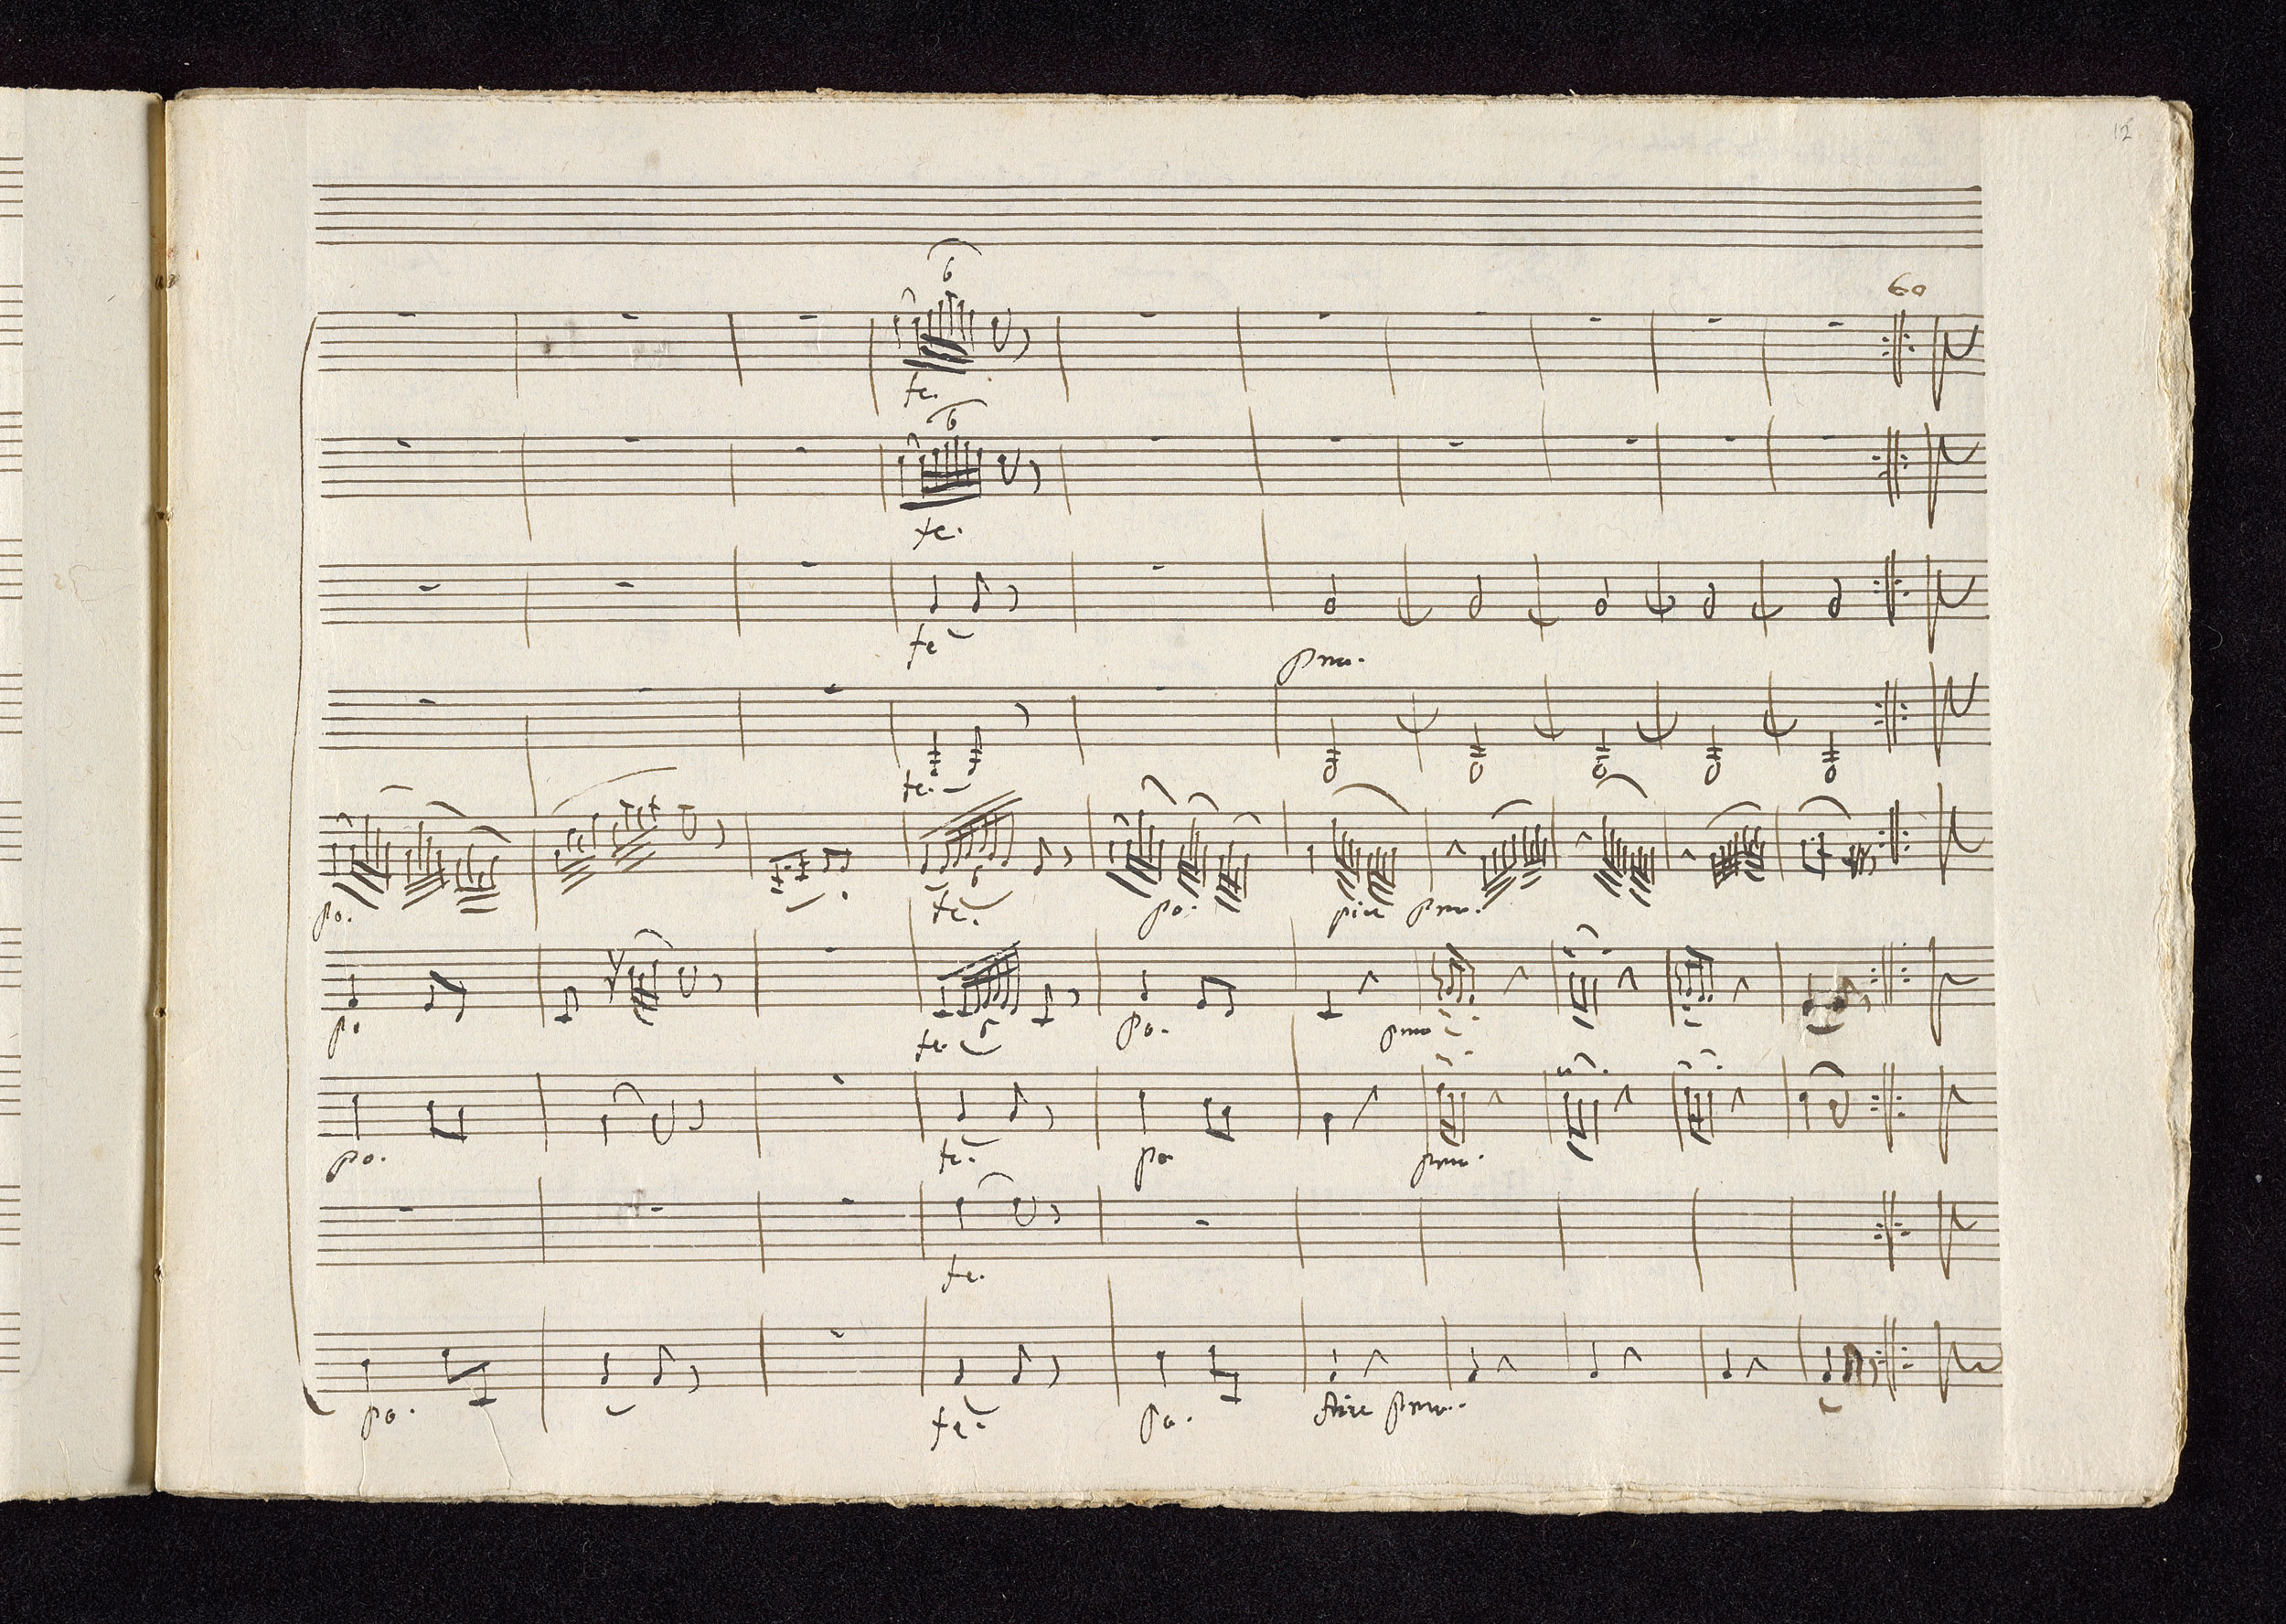 12
6
60
fe.
6
fe.
fe
pmo.
fe.
6
po.
fe.
po.
piu pmo.
po
fe. 6
po.
pmo
po.
fe.
po
pmo.
fe.
po.
fe.
po.
pmo.